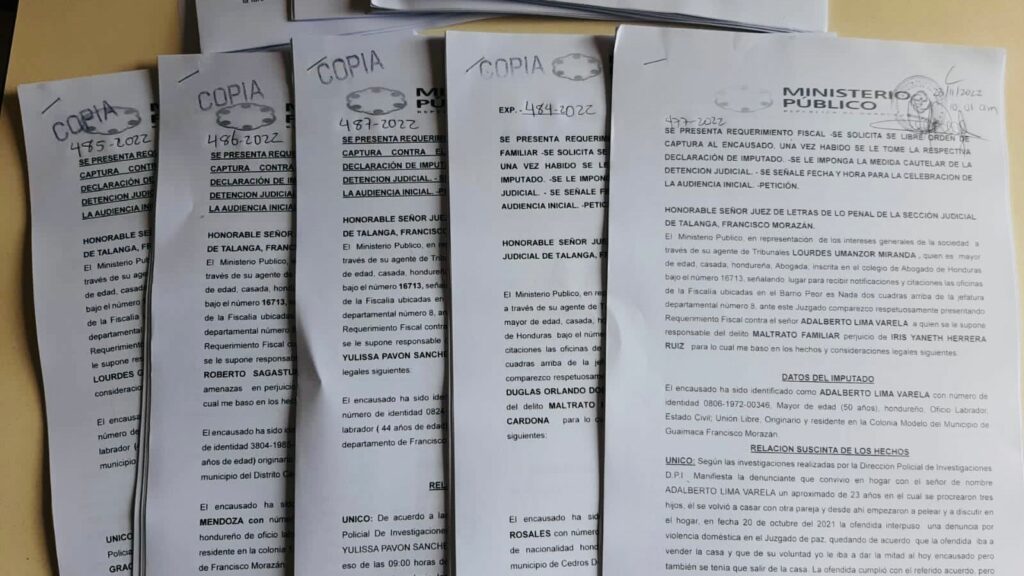 COPIA
485-2022
SE PRESENTA REQU
CAPTURA CONTRA
DECLARACIÓN DE
DETENCION JUDICIAL
LA AUDIENCIA INICIAL
HONORABLE SEÑOR
DE TALANGA, FRA
El Ministerio Publico
través de su agente
de edad, casada,
bajo el número
de la Fiscalia
departamental
Requerimiento
se le supone
LOURDES G
consideracio
El encausa
número de
labrador (
municipio
UNICO
Policial
GRAC
COPIA
486-2022
SE PRESENTA REQU
CAPTURA CONTRA
DECLARACIÓN DE IM
DETENCION JUDICIAL
LA AUDIENCIA INICIA
HONORABLE SEÑOR
DE TALANGA, FRANCIS
El Ministerio Publico, en
través de su agente de T
de edad, casada, hondure
bajo el número 16713, s
de la Fiscalia ubicadas e
departamental número 8
Requerimiento Fiscal co
se le supone responsa
ROBERTO SAGASTU
amenazas en perjuicio
cual me baso en los hec
El encausado ha sido id
de identidad 3804-1985-
años de edad) originari
municipio del Distrito C
El encausado ha sid
MENDOZA con núme
hondureño de oficio lab
residente en la colonia
de Francisco Morazán.
COPIA
487-2022
SE PRESENTA REQUERIM
CAPTURA CONTRA EL
DECLARACIÓN DE IMPUTA
DETENCION JUDICIAL. - S
LA AUDIENCIA INICIAL. -P
HONORABLE SEÑOR JUEZ
DE TALANGA, FRANCISCO
El Ministerio Publico, en rep
través de su agente de Tribun
de edad, casada, hondureña
bajo el número 16713, señala
de la Fiscalia ubicadas en
departamental número 8, an
Requerimiento Fiscal contra
se le supone responsable
YULISSA PAVON SANCHE
legales siguientes:
El encausado ha sido ide
número de identidad 0824
labrador ( 44 años de edad)
departamento de Francisco
REL
UNICO: De acuerdo a la
Policial De Investigaciones
YULISSA PAVON SANCHE
eso de las 09:00 horas de
COPIA
EXP. 484-2022
SE PRESENTA REQUERIM
FAMILIAR -SE SOLICITA SE
UNA VEZ HABIDO SE LE
IMPUTADO. -SE LE IMPON
JUDICIAL. - SE SEÑALE F
AUDIENCIA INICIAL. -PETIC
HONORABLE SEÑOR JU
JUDICIAL DE TALANGA,
El Ministerio Publico, en re
a través de su agente de T
mayor de edad, casada, h
de Honduras bajo el núme
citaciones las oficinas de
cuadras arriba de la jef
comparezco respetuosame
DUGLAS ORLANDO DO
del delito MALTRATO
CARDONA para lo c
siguientes:
El encausado ha sid
ROSALES con número
de nacionalidad hond
municipio de Cedros D
MINISTERIO
PÚBLICO
REPÚBLICA DE HONDURAS
23/11/2022
477-2022
SE PRESENTA REQUERIMIENTO FISCAL -SE SOLICITA SE LIBRE ORDEN DE
CAPTURA AL ENCAUSADO. UNA VEZ HABIDO SE LE TOME LA RESPECTIVA
DECLARACIÓN DE IMPUTADO. -SE LE IMPONGA LA MEDIDA CAUTELAR DE LA
DETENCIÓN JUDICIAL. - SE SEÑALE FECHA Y HORA PARA LA CELEBRACION DE
LA AUDIENCIA INICIAL. -PETICIÓN.
HONORABLE SEÑOR JUEZ DE LETRAS DE LO PENAL DE LA SECCIÓN JUDICIAL
DE TALANGA, FRANCISCO MORAZÁN.
El Ministerio Publico, en representación de los intereses generales de la sociedad a
través de su agente de Tribunales LOURDES UMANZOR MIRANDA , quien es mayor
de edad, casada, hondureña, Abogada, inscrita en el colegio de Abogado de Honduras
bajo el número 16713, señalando, lugar para recibir notificaciones y citaciones las oficinas
de la Fiscalia ubicadas en el Barrio Peor es Nada dos cuadras arriba de la jefatura
departamental número 8, ante este Juzgado comparezco respetuosamente presentando
Requerimiento Fiscal contra el señor ADALBERTO LIMA VARELA a quien se le supone
responsable del delito MALTRATO FAMILIAR perjuicio de IRIS YANETH HERRERA
RUIZ para lo cual me baso en los hechos y consideraciones legales siguientes:
DATOS DEL IMPUTADO
El encausado ha sido identificado como ADALBERTO LIMA VARELA con número de
identidad 0806-1972-00346, Mayor de edad (50 años), hondureño, Oficio Labrador,
Estado Civil; Unión Libre, Originario y residente en la Colonia Modelo del Municipio de
Guaimaca Francisco Morazán.
RELACION SUSCINTA DE LOS HECHOS
UNICO: Según las investigaciones realizadas por la Dirección Policial de Investigaciones
D.P.I Manifiesta la denunciante que convivio en hogar con el señor de nombre
ADALBERTO LIMA VARELA un aproximado de 23 años en el cual se procrearon tres
hijos, el se volvió a casar con otra pareja y desde ahí empezaron a pelear y a discutir en
el hogar, en fecha 20 de octubre del 2021 la ofendida interpuso una denuncia por
violencia doméstica en el Juzgado de paz, quedando de acuerdo que la ofendida iba a
vender la casa y que de su voluntad yo le iba a dar la mitad al hoy encausado pero
también se tenia que salir de la casa. La ofendida cumplió con el referido acuerdo pero